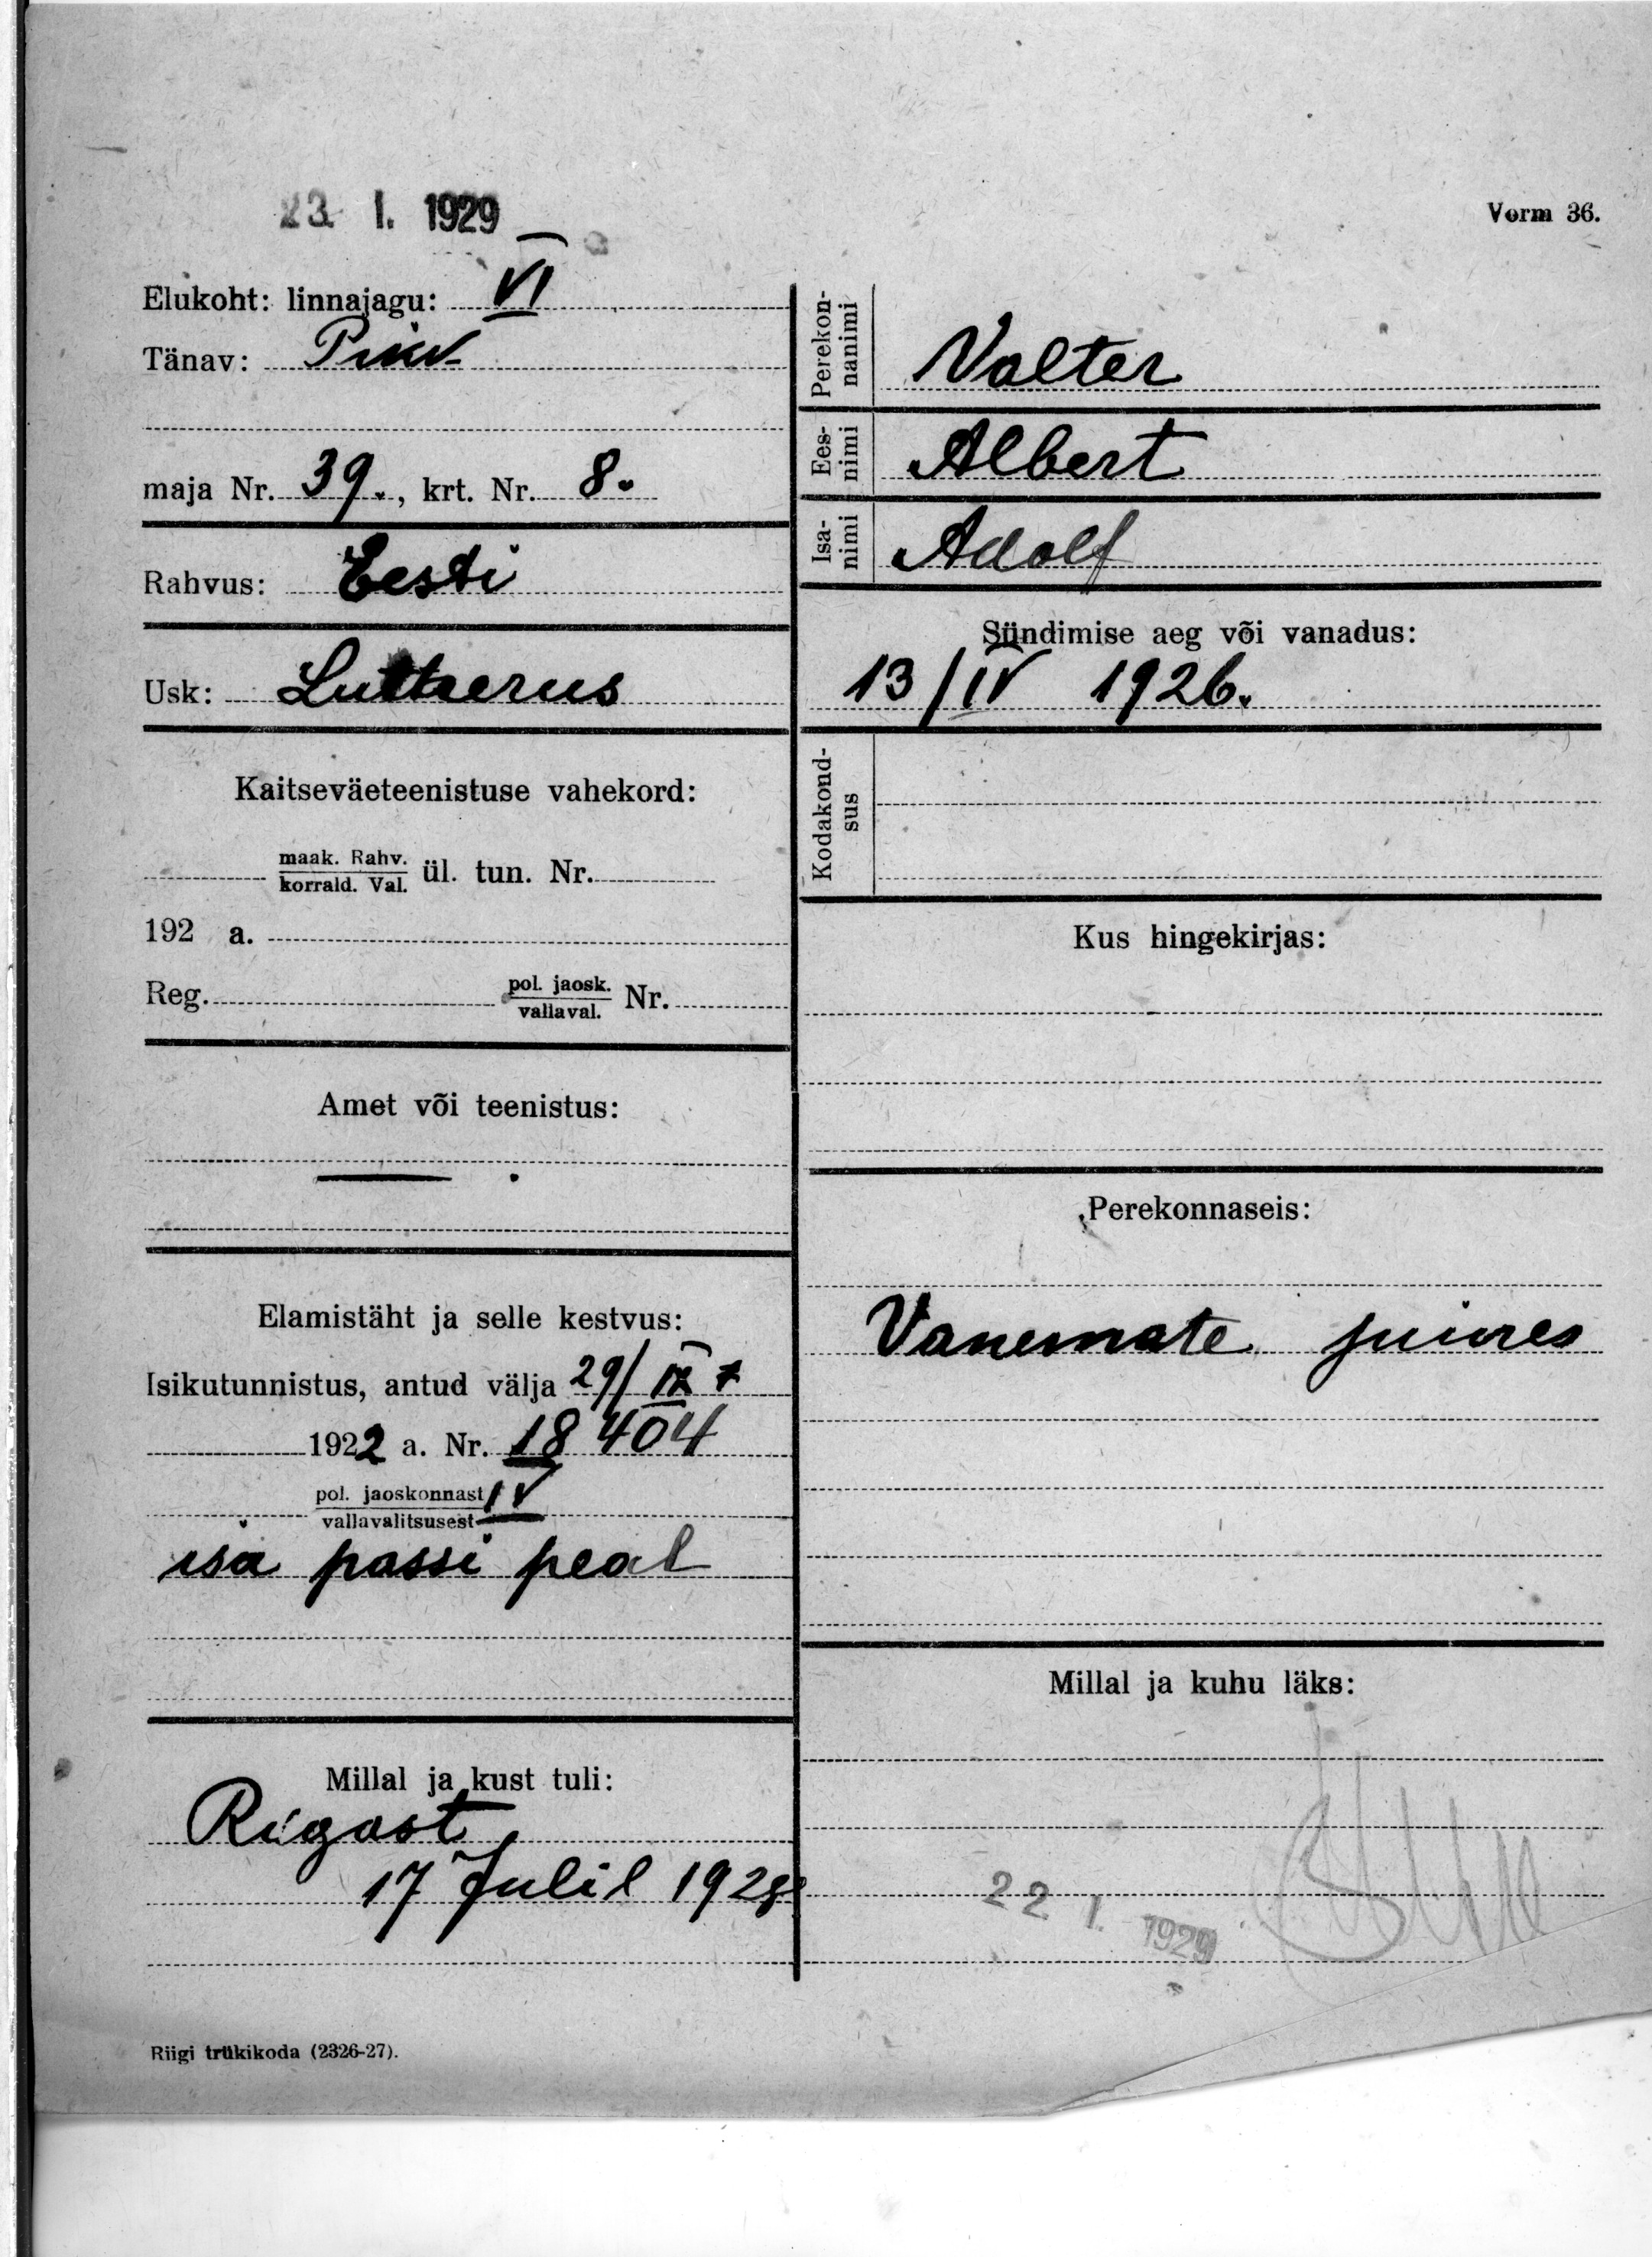 23. I. 1929
Vorm 36.
Elukoht: linnajagu: VI
Tänav:
maja Nr. 39., krt. Nr. 8.
Rahvus: Eesti
Usk: Luttaerus
Kaitseväeteenistuse vahekord:
maak. Rahv.
korrald. Val. ül. tun. Nr.
192 a.
Reg. pol. jaosk.
vallaval. Nr.
Amet või teenistus:
Elamistäht ja selle kestvus:
Isikutunnistus, antud välja 29/IX
1922 a. Nr. 18404
pol. jaoskonnast IV
vallavalitsusest
isa passi peal
Millal ja kust tuli:
Rigast
17 Julil 1928
Riigi trükikoda (2326-27).
Perekonnanimi Valter
Eesnimi Albert
Isanimi Adolf
Sündimise aeg või vanadus:
13/IV 1926.
Kodakondsus
Kus hingekirjas:
Perekonnaseis:
Vanemate juures
Millal ja kuhu läks:
22 I. 1929